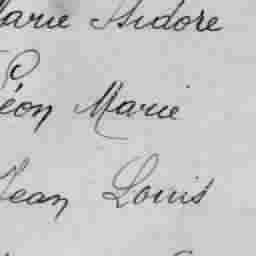 Marie Isidore
Léon Marie
Jean Louis